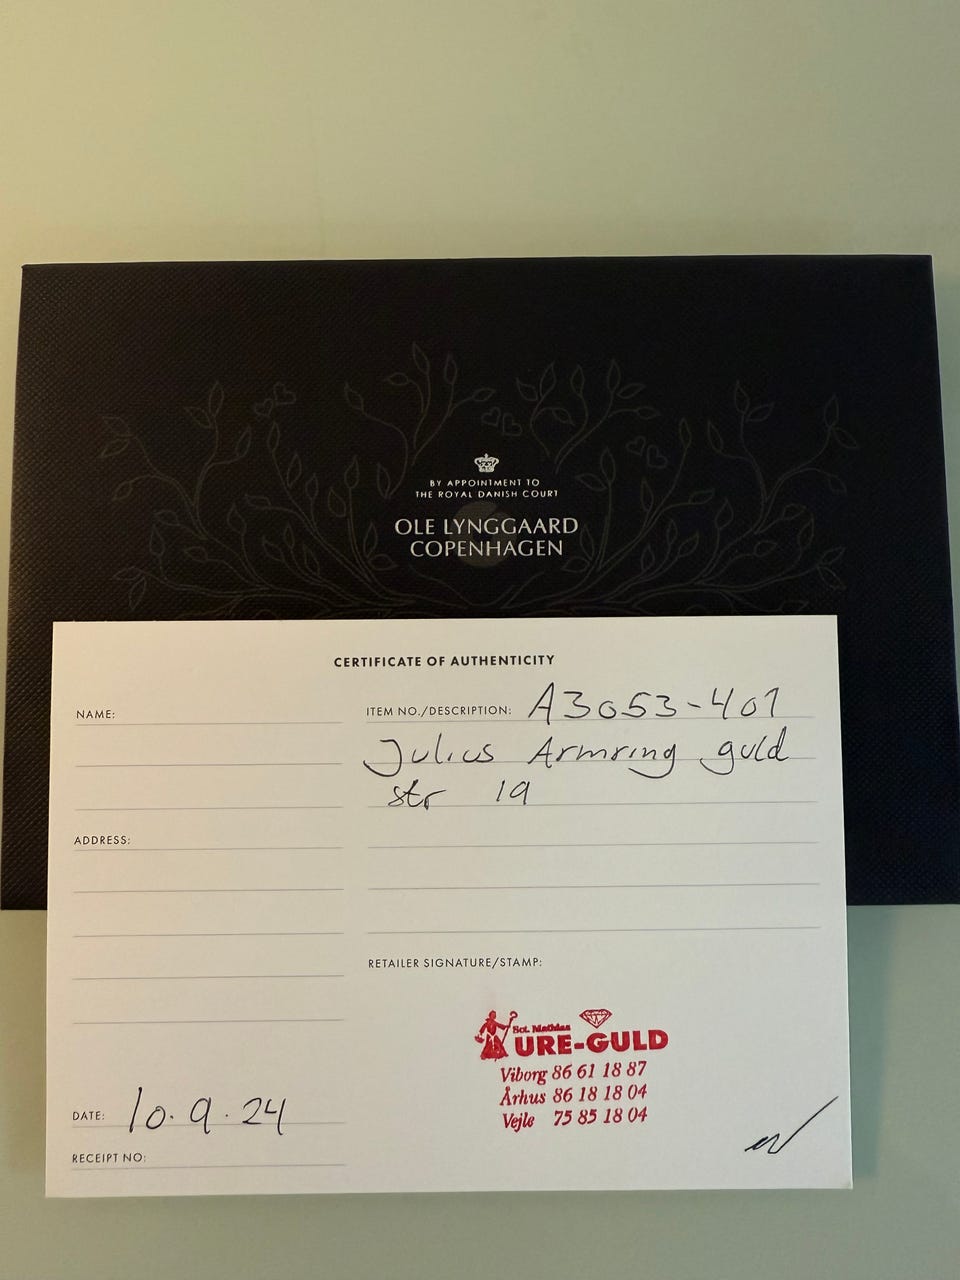 BY APPOINTMENT TO
THE ROYAL DANISH COURT
OLE LYNGGAARD
COPENHAGEN
CERTIFICATE OF AUTHENTICITY
NAME:
ADDRESS:
DATE: 10.9.24
RECEIPT NO:
ITEM NO./DESCRIPTION: A3053-401
Julius Armring guld
str 19
RETAILER SIGNATURE/STAMP:
Sct. Mathias
URE-GULD
Viborg 86 61 18 87
Århus 86 18 18 04
Vejle 75 85 18 04